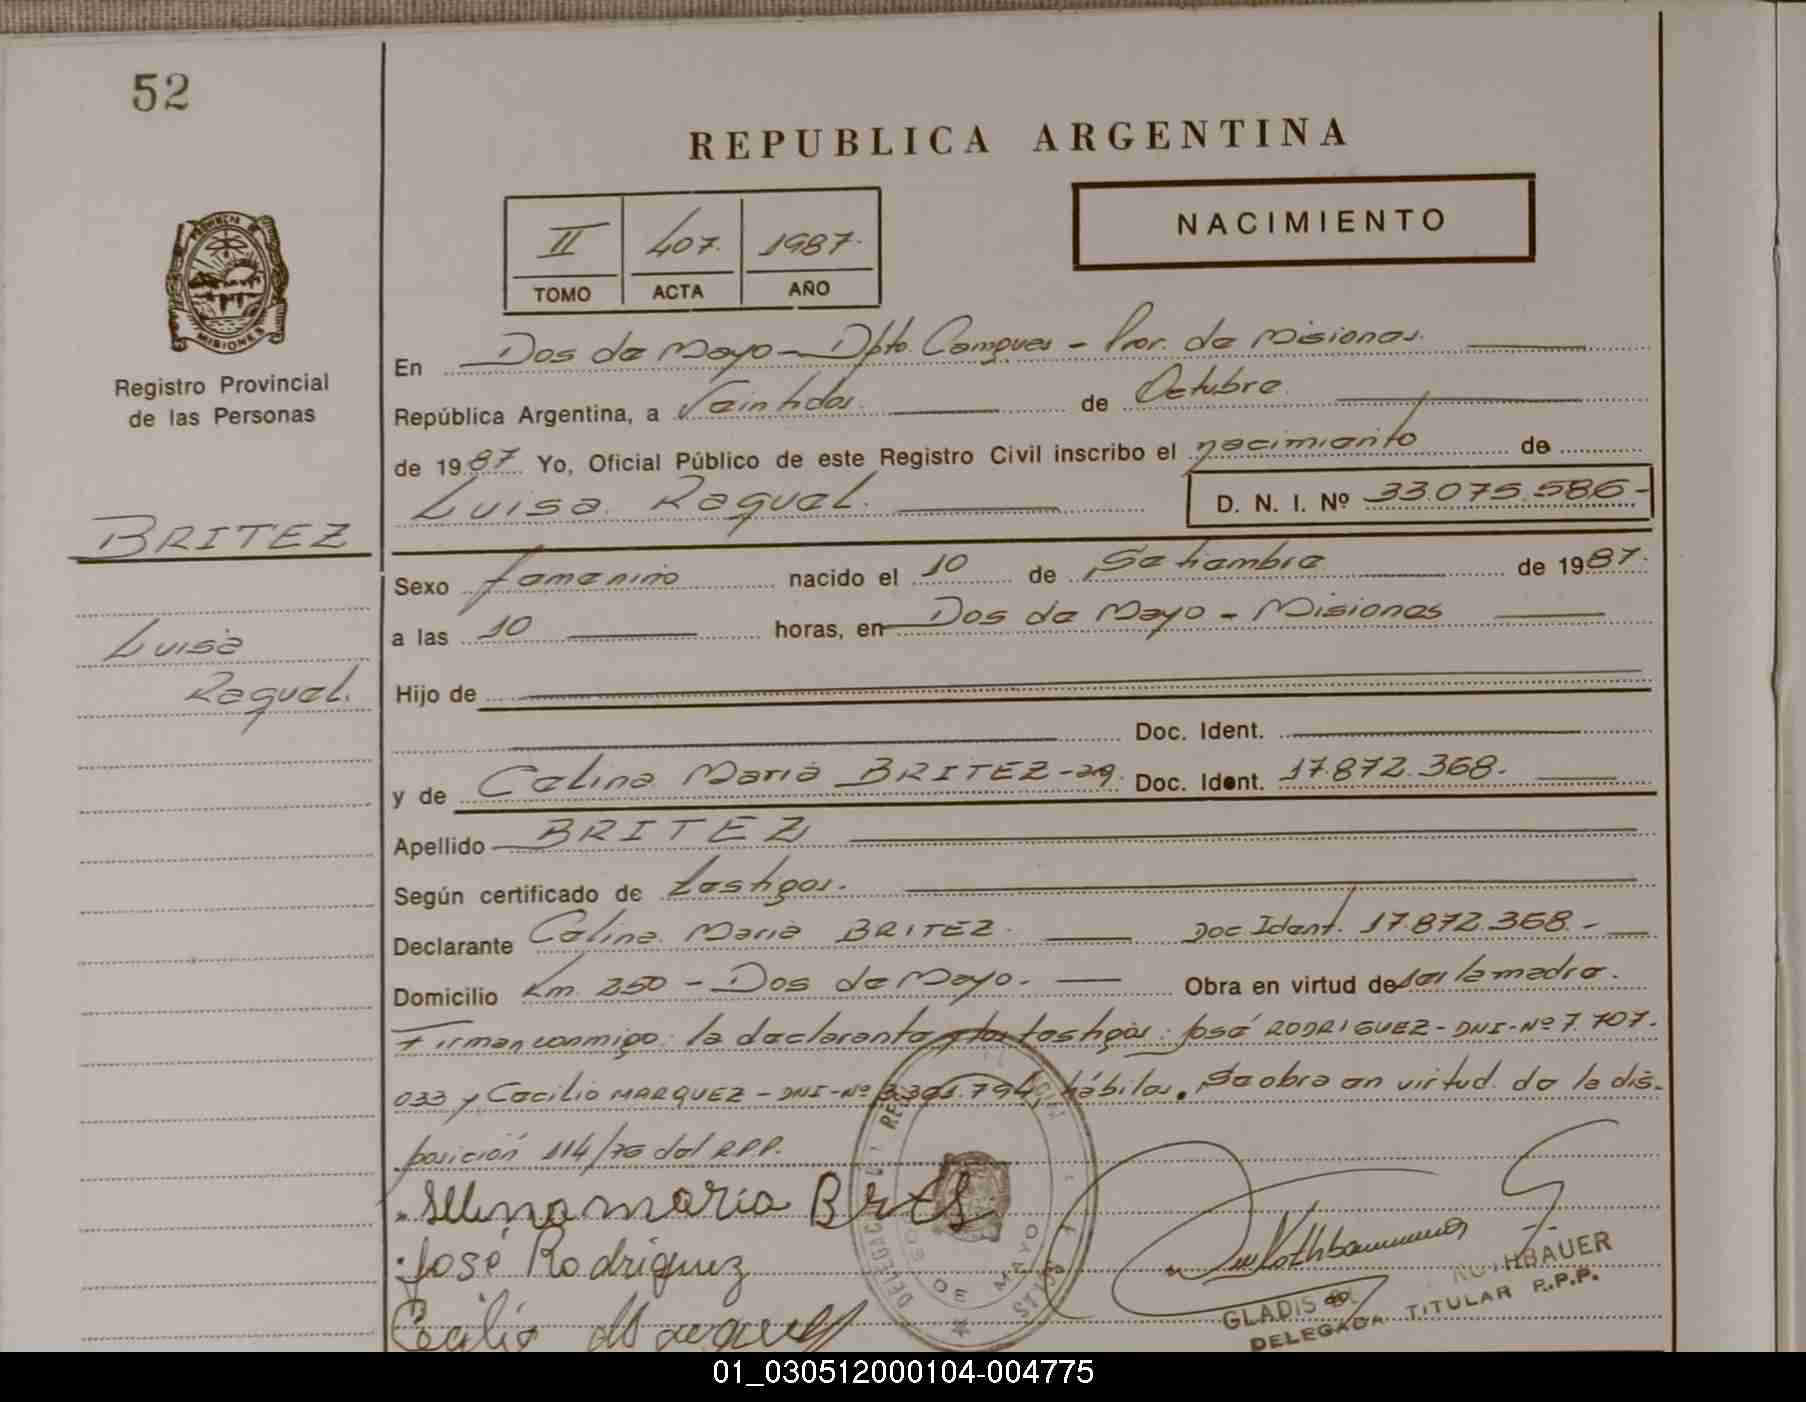 52
REPUBLICA ARGENTINA
NACIMIENTO
II 407. 1987.
TOMO ACTA AÑO
PROVINCIA DE
MISIONES
Registro Provincial
de las Personas
BRITEZ
Luisa
Raquel.
En Dos de Mayo - Dpto. Cainguas - Prov. de Misiones.
República Argentina, a Veintidos. de Octubre.
de 1987 Yo, Oficial Público de este Registro Civil inscribo el nacimiento de
Luisa Raquel. D. N. I. Nº 33.075.586-
Sexo femenino nacido el 10 de Setiembre de 1987.
a las 10 horas, en Dos de Mayo - Misiones
Hijo de
Doc. Ident.
y de Celina Maria BRITEZ-arg. Doc. Ident. 17.872.368.
Apellido BRITEZ
Según certificado de testigos.
Declarante Celina Maria BRITEZ. Doc Ident. 17.872.368.-
Domicilio Km. 250 - Dos de Mayo. Obra en virtud de ser la madre.
Firman conmigo: la declarante y los testigos: José RODRIGUEZ - DNI-Nº 7.707.
033 y Cecilio MARQUEZ - DNI-Nº 3.391.794, hábiles. Se obra en virtud de la dis-
posición 114/76 del R.P.P.
Selinamaria
José Rodriguez
Cecilio
DOS DE MAYO
ROTHBAUER
GLADIS
DELEGADA TITULAR R.P.P.
01_030512000104-004775